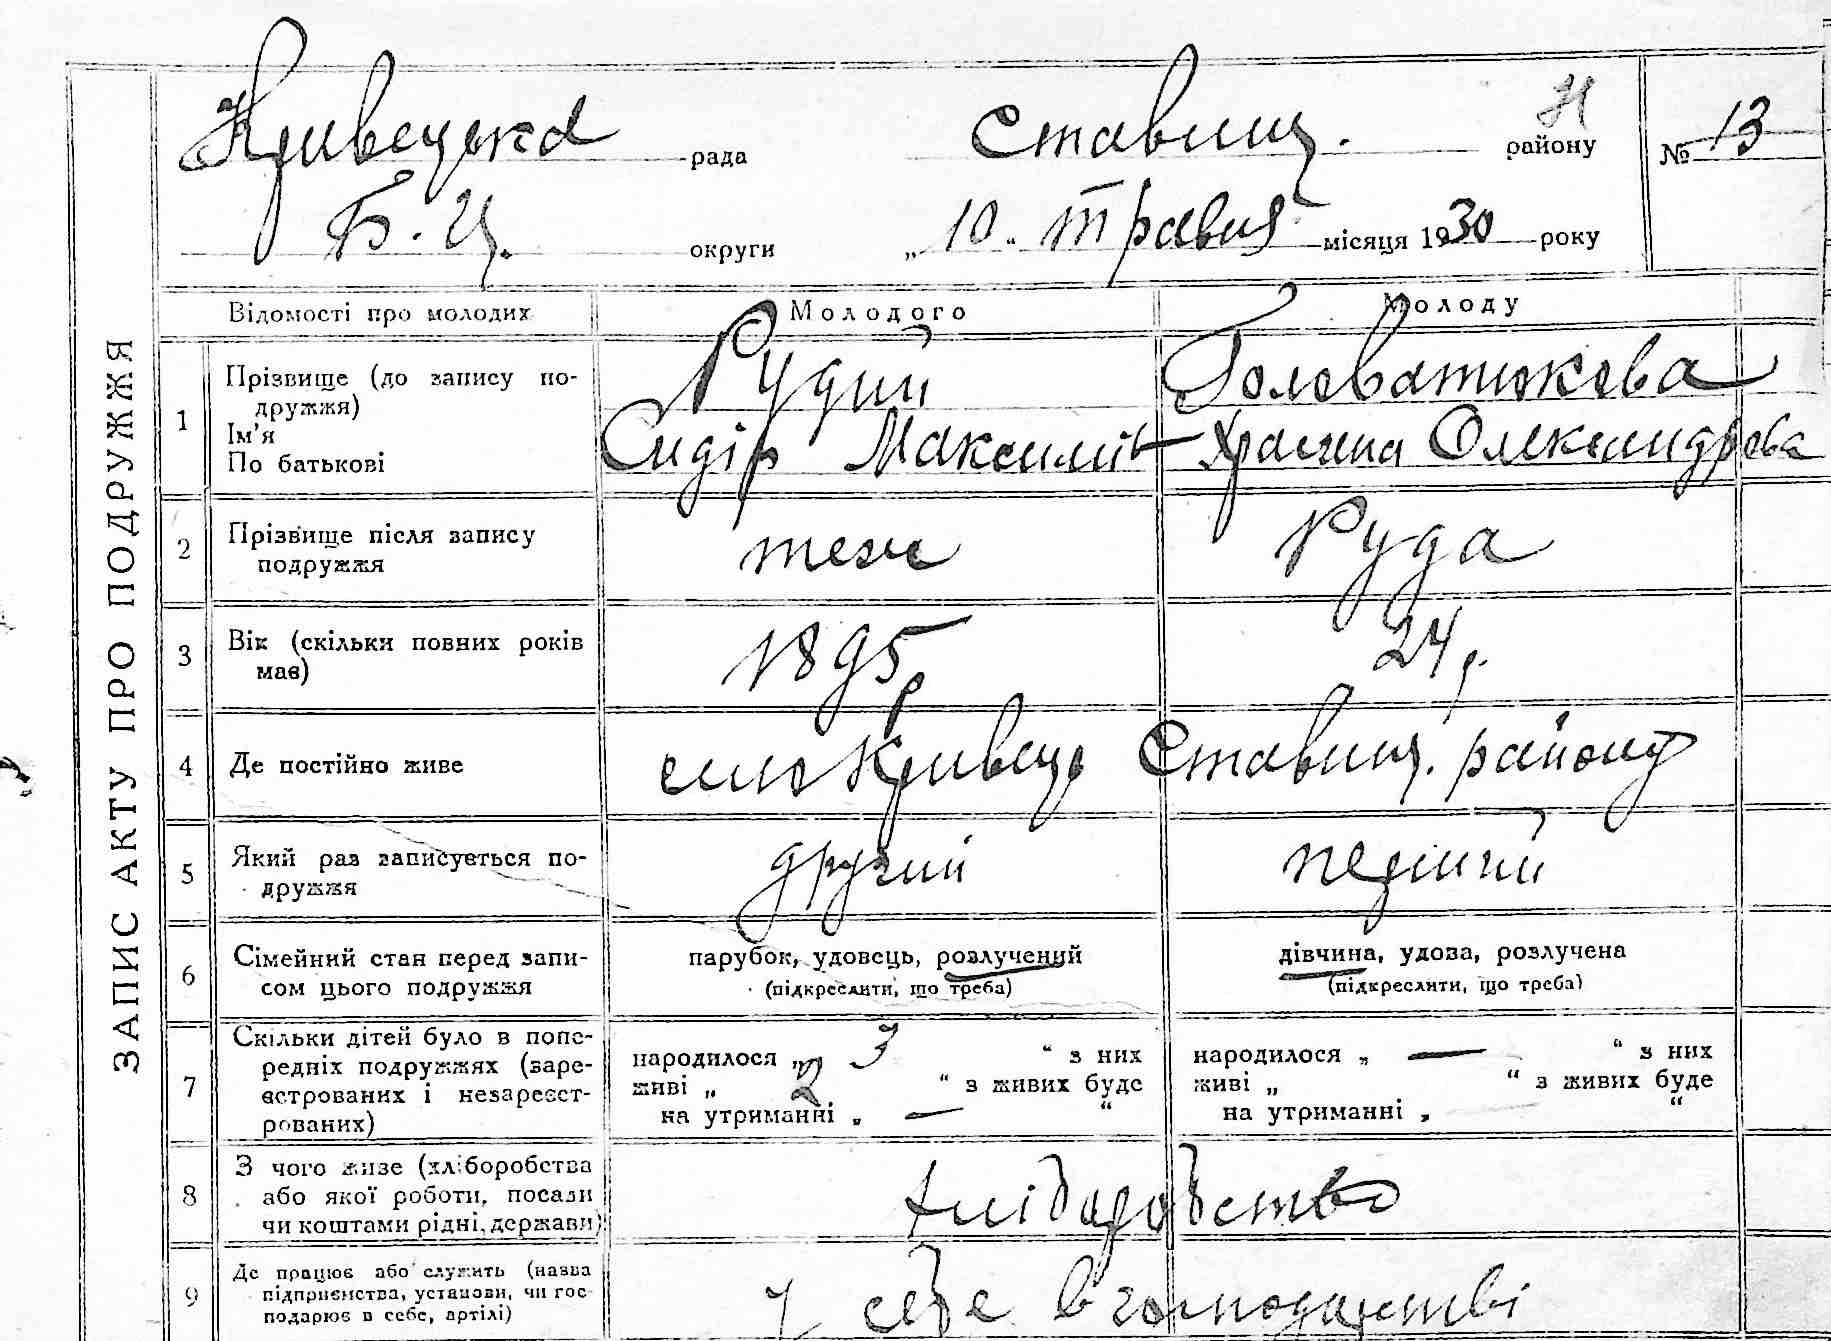 Кривецька рада Ставищ. району № 13
Б. Ц. округи „10“ травня місяця 1930 року
ЗАПИС АКТУ ПРО ПОДРУЖЖЯ
Відомості про молодих Молодого Молоду
1 Прізвище (до запису по- Рудий Головатюкова
дружжя)
Ім'я Сидір Максимів Храсина Олександрова
По батькові
2 Прізвище після запису теж Руда
подружжя
3 Вік (скільки повних років 1895 р 24 р.
має)
4 Де постійно живе село Кривець Ставищ. району
5 Який раз записується по- другий перший
дружжя
6 Сімейний стан перед запи- парубок, удовець, розлучений дівчина, удова, розлучена
сом цього подружжя (підкреслити, що треба) (підкреслити, що треба)
7 Скільки дітей було в попе- народилося „ 3 “ з них народилося „ — “ з них
редніх подружжях (заре- живі „ 2 “ з живих буде живі „ “ з живих буде
єстрованих і незареєст- на утриманні „ — “ на утриманні „ “
рованих)
8 З чого живе (хліборобства хліборобство
або якої роботи, посади
чи коштами рідні, держави)
9 Де працює або служить (назва у себе в господарстві
підприємства, установи, чи гос-
подарює в себе, артілі)